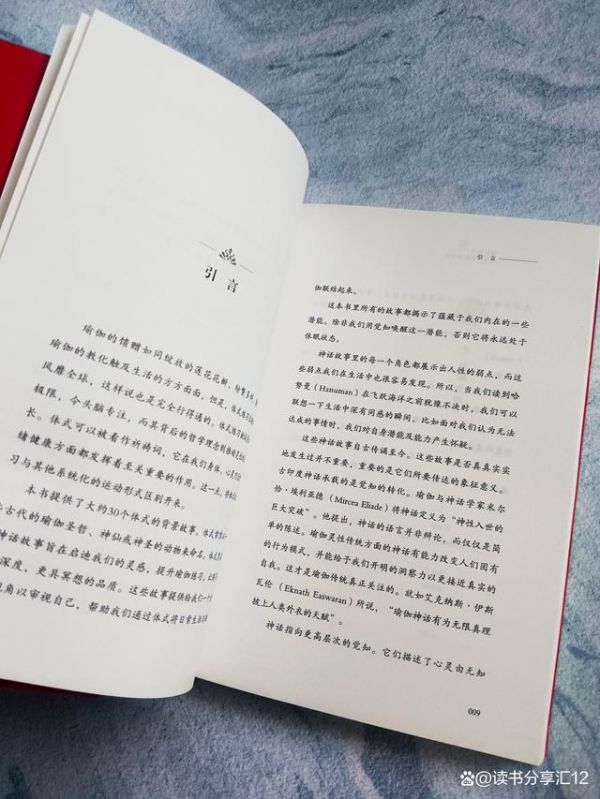 引言
瑜伽的馈赠如同绽放的莲花花瓣，
瑜伽的教化触及生活的方方面面，但是，体
风靡全球，这样说也是完全行得通的。体式练习
极限，令头脑专注，而其背后的哲学理念则
长。体式可以被看作祈祷词，它在我们身体、心灵
绪健康方面都发挥着至关重要的作用。这一点，
习与其他系统化的运动形式区别开来。
本书提供了大约30个体式的背景故事，体式
古代的瑜伽圣哲、神仙或神圣的动物来命名，
神话故事旨在启迪我们的灵感，提升瑜伽练习，
深度，更具冥想的品质。这些故事提供给我们一个
角以审视自己，帮助我们通过体式将日常生活
引言
伽联结起来。
这本书里所有的故事都揭示了蕴藏于我们内在的一些
潜能，除非我们用觉知唤醒这一潜能，否则它将永远处于
休眠状态。
神话故事里的每一个角色都展示出人性的弱点，而这
些弱点我们在生活中也很容易发现。所以，当我们读到哈
努曼（Hanuman）在飞跃海洋之前犹豫不决时，我们可以
联想一下生活中深有同感的瞬间，比如面对我们认为无法
达成的事情时，我们对自身潜能及能力产生怀疑。
这些神话故事自古传诵至今。这些故事是否真真实实
地发生过并不重要，重要的是它们所要传达的象征意义。
古印度神话承载的是觉知的转化。瑜伽与神话学家米尔
恰·埃利亚德（Mircea Eliade）将神话定义为“神性入世的
巨大突破”。他提出，神话的语言并非辩论，而仅仅是简
单的陈述。瑜伽灵性传统方面的神话有能力改变人们固有
的行为模式，并能给予我们开明的洞察力以更接近真实的
自我。这才是瑜伽传统真正关注的。就如艾克纳斯·伊斯
瓦伦（Eknath Easwaran）所说，“瑜伽神话有为无限真理
披上人类外衣的天赋”。
神话指向更高层次的觉知。它们描述了心灵由无知
009
读书分享汇12